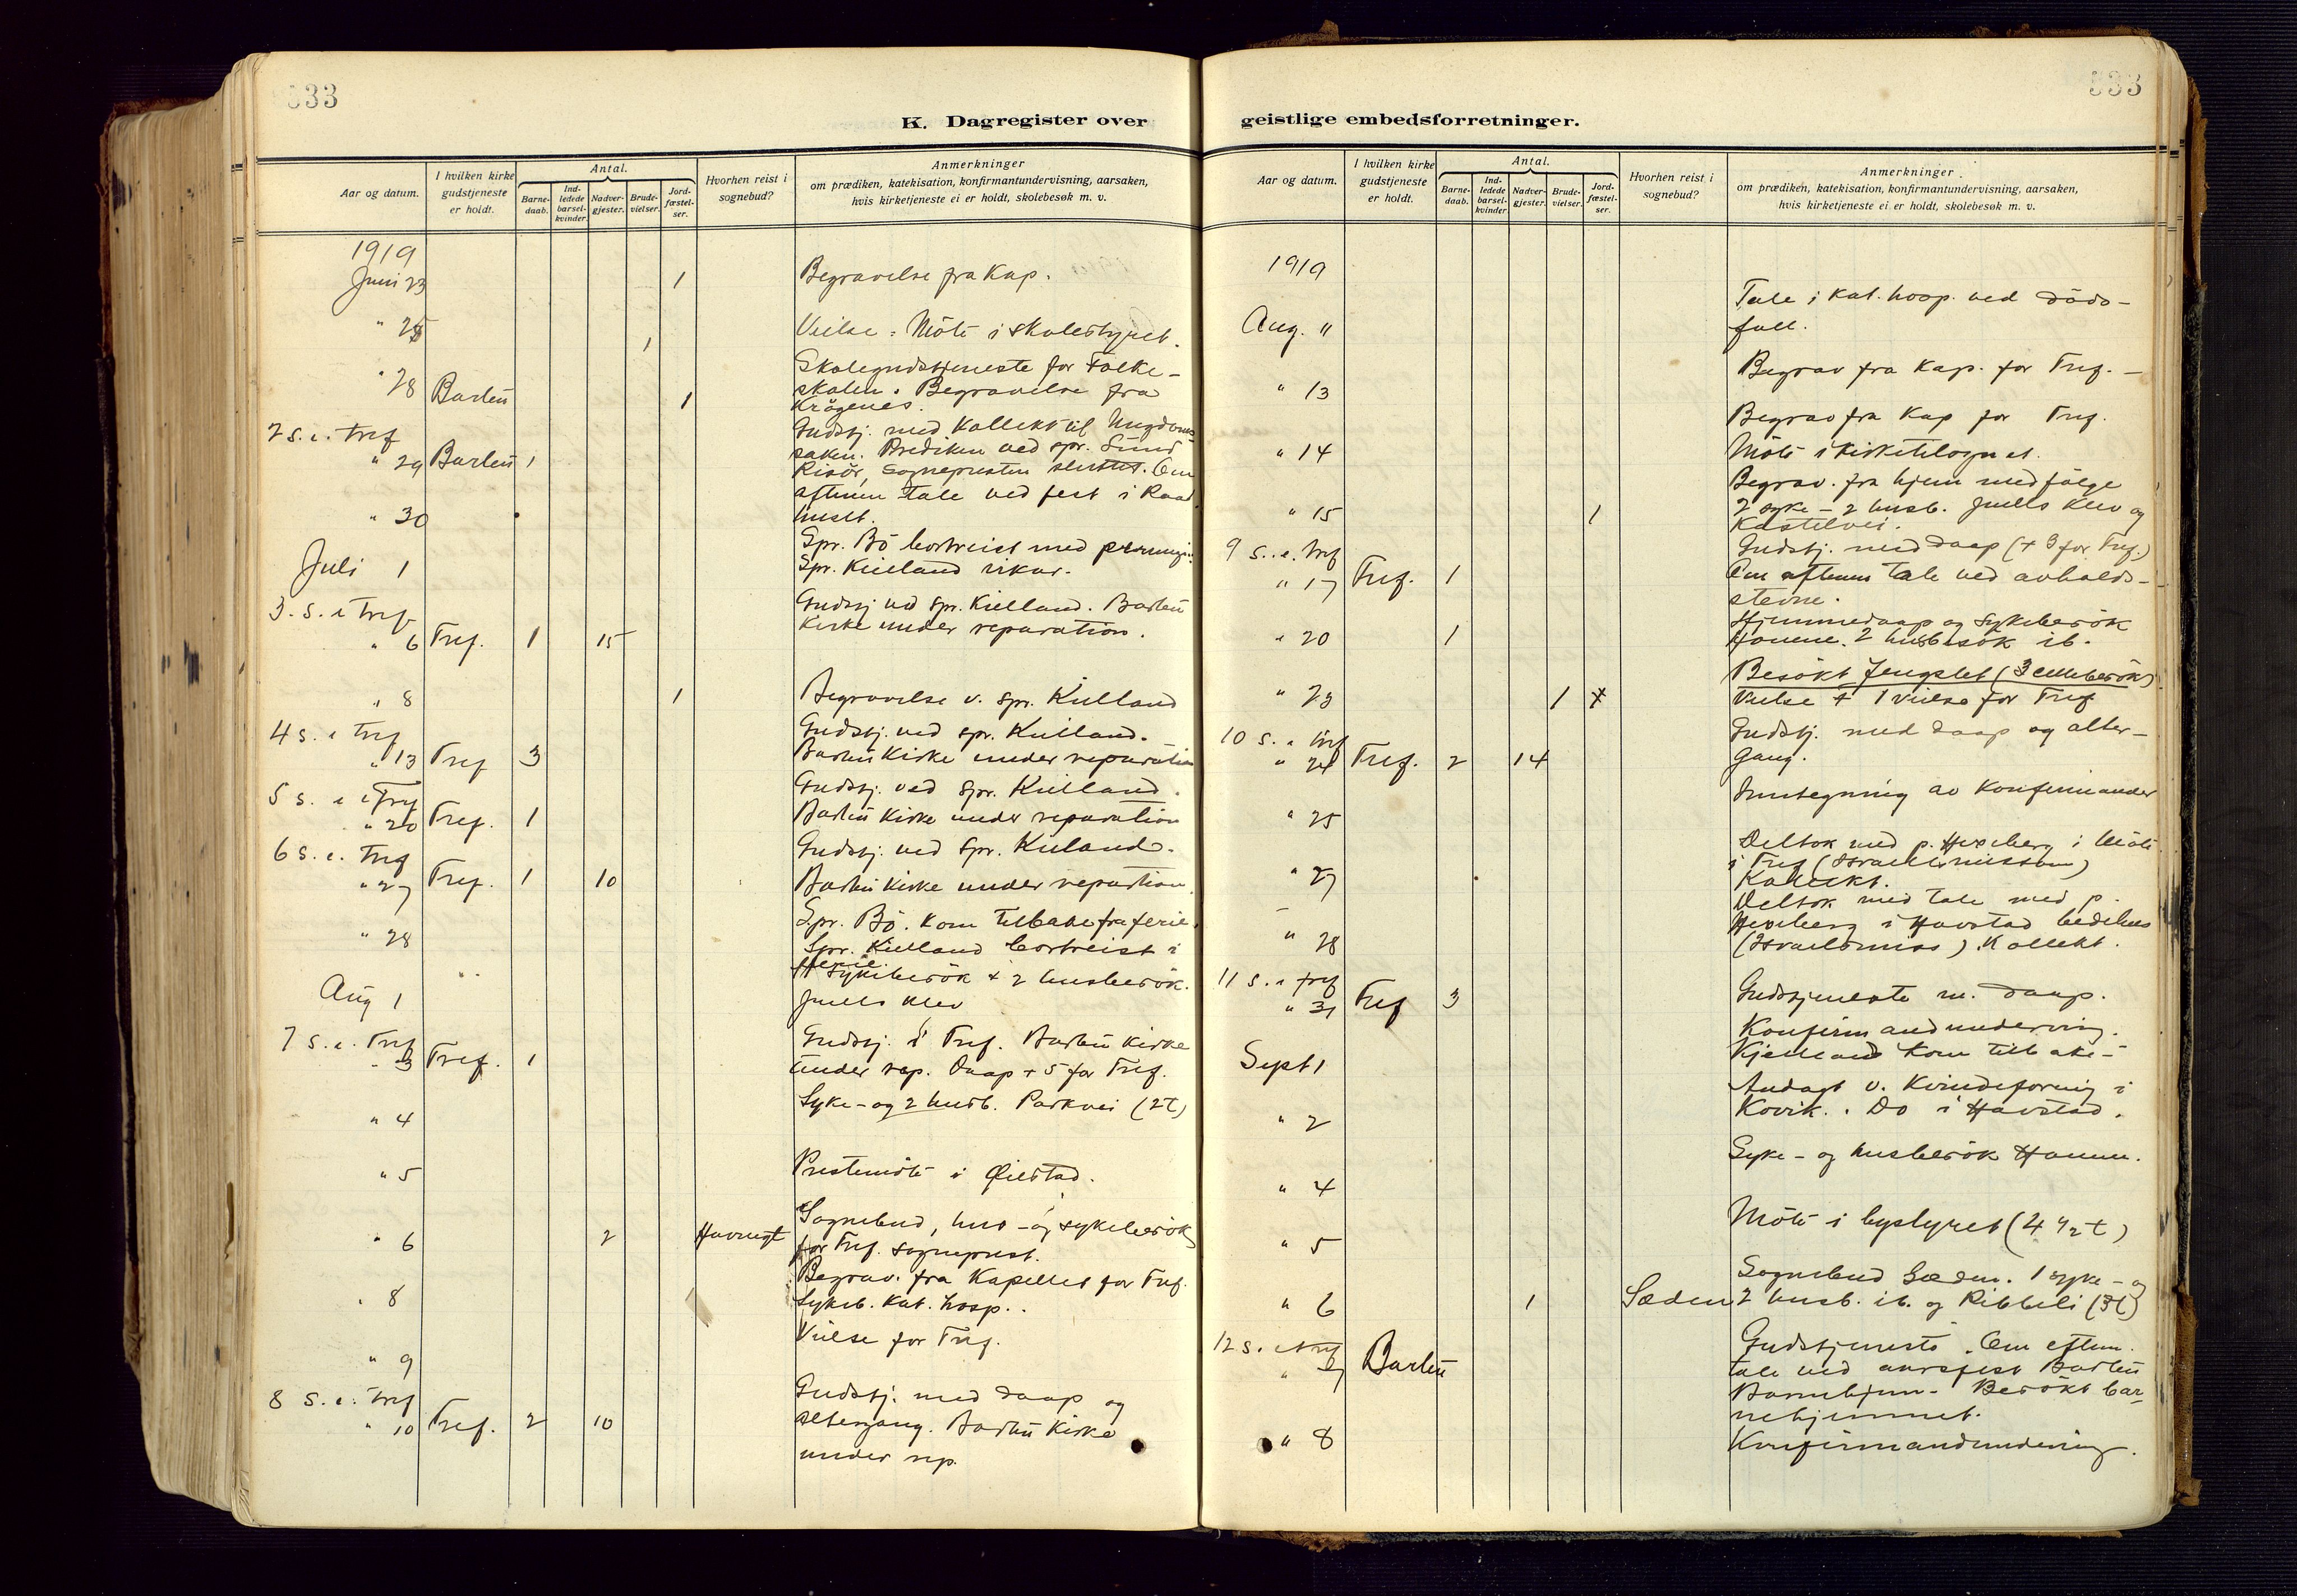 333
K. Dagregister over
Aar og datum.
I hvilken kirke gudstjeneste er holdt.
Antal.
Barnedaab.
Indledede barselkvinder.
Nadvergjester.
Brudevielser.
Jordfæstelser.
Hvorhen reist i sognebud?
Anmerkninger
om prædiken, katekisation, konfirmantundervisning, aarsaken,
hvis kirketjeneste ei er holdt, skolebesøk m. v.
1919
Juni 23 1 Begravelse fra Kap.
" 25 1 Vielse: Möte i skolestyret.
" 28 Barbu 1 Skolegudstjeneste for Folke-
skolen. Begravelse fra
Krögenes.
2 s. e. Tref
" 29 Barbu 1 Gudstj. med Kollekt til Ungdoms
saken. Prediken ved spr. Sund
Risör, sognepresten sluttet. Om
aftenen tale ved fest i Raad
huset.
" 30
Juli 1 Spr. Bö bortreist med
Spr. Kielland vikar.
3. s. e Tref
" 6 Tref. 1 15 Gudstj ved spr. Kielland. Barbu
Kirke under reparation.
" 8 1 Begravelse v. spr. Kielland
4 s. e Tref
" 13 Tref 3 Gudstj. ved spr. Kielland.
Barbu Kirke under reparation
5 s. e Tref
" 20 Tref. 1 Gudstj. ved spr. Kielland.
Barbu Kirke under reparation
6 s. e. Tref
" 27 Tref. 1 10 Gudstj. ved spr. Kieland.
Barbu Kirke under repartion.
" 28 Spr. Bö. kom tilbake fra ferie.
Spr. Kielland bortreist i
ferie.
Aug 1 Sykebesök + 2 husbesök.
Juells Klev
7 s. e. Tref
" 3 Tref. 1 Gudstj. i Tref. Barbu Kirke
under rep. Daap + 5 for Tref.
" 4 Syke- og 2 husb. Parkvei (2t)
" 5 Prestemöte i Øiestad.
" 6 2 Havnegt Sognebud, hus- og sykebesök
for Tref. sogneprest.
" 8 Begrav. fra Kapellet for Tref.
Sykeb. Kat. hosp.
" 9 Vielse for Tref.
8 s. e. Tref
" 10 Tref. 2 10 Gudstj. med daap og
altergang. Barbu Kirke
under rep.
333
geistlige embedsforretninger.
Aar og datum.
I hvilken kirke gudstjeneste er holdt.
Antal.
Barnedaab.
Indledede barselkvinder
Nadvergjester.
Brudevielser.
Jordfæstelser.
Hvorhen reist i sognebud?
Anmerkninger.
om prædiken, katekisation, konfirmantundervisning, aarsaken,
hvis kirketjeneste ei er holdt, skolebesøk m. v.
1919
Aug. 11 Tale i Kat. hosp. ved döds-
fall.
" 13 Begrav fra Kap. for Tref. -
" 14 Begrav fra Kap for Tref.
Möte i kirketilsynet.
" 15 1 Begrav. fra hjem med fölge
2 syke- 2 husb. Juells Klev og
Kastelvei.
9 s. e. Tref
" 17 Tref. 1 Gudstj. med daap (+ 3 for Tref.)
Om aftenen tale ved avholds-
stevne.
" 20 1 Hjemmedaap og Sykebesök
2 husbesök ib.
" 23 1 Besökt fengslet (3 cellebesök)
Vielse + 1 vielse for Tref
10 s. e Tref
" 24 Tref. 2 14 Gudstj. med daap og alter-
gang.
" 25 Inntegning av Konfirmander
" 27 Deltok med p. Hexeberg i Möte
i Tref (Israelsmissionen)
Kollekt.
" 28 Deltok med tale med p.
Hexeberg i Havstad bedehus
(Israelsmiss). Kollekt.
11 s. e Tref
" 31 Tref 3 Gudstjeneste m. daap.
Sept 1 Konfirmandundervisn.
Kjelland kom tilbake-
" 2 Andagt v. Kvindeforening i
Kovik. Do i Havstad.
" 4 Syke- og husbesök
" 5 Möte i bystyret (4 1/2 t)
" 6 1 Sæden Sognebud Sæden. 1 syke- og
2 husb. ib. og (3t)
12 s. e Tref
" 7 Barbu Gudstjeneste. Om eftem.
tale ved aarsfest Barbu
Barnehjem- Besökt bar-
nehjemmet.
" 8 Konfirmandundervisning.